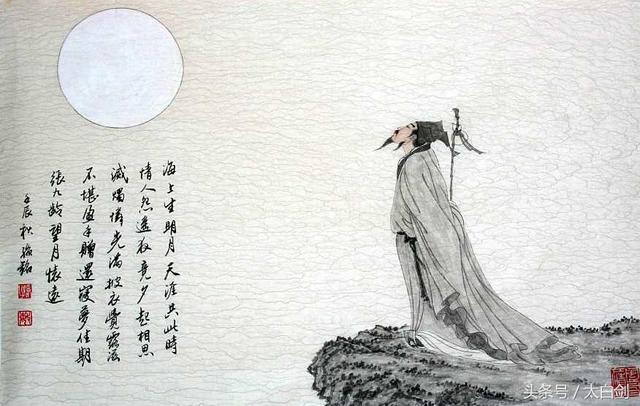 海上生明月天涯共此時
情人怨遥夜竟夕起相思
滅燭憐光滿披衣覺露滋
不堪盈手贈還寢夢佳期
張九齡望月懷遠
壬辰秋
头条号 / 太白剑